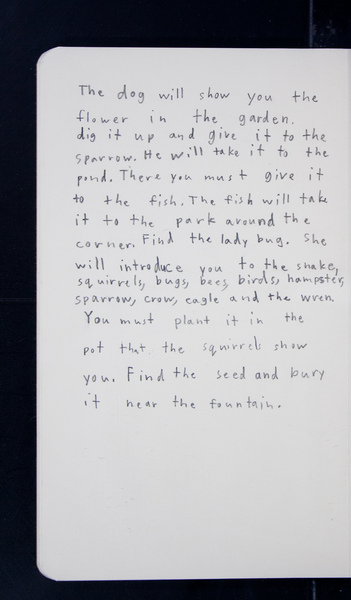 The dog will show you the
flower in the garden.
dig it up and give it to the
sparrow. He will take it to the
pond. There you must give it
to the fish. The fish will take
it to the park around the
corner. Find the lady bug. She
will introduce you to the snake,
squirrels, bugs, bees, birds, hampster,
sparrow, crow, eagle and the wren.
You must plant it in the
pot that the squirrels show
you. Find the seed and bury
it near the fountain.